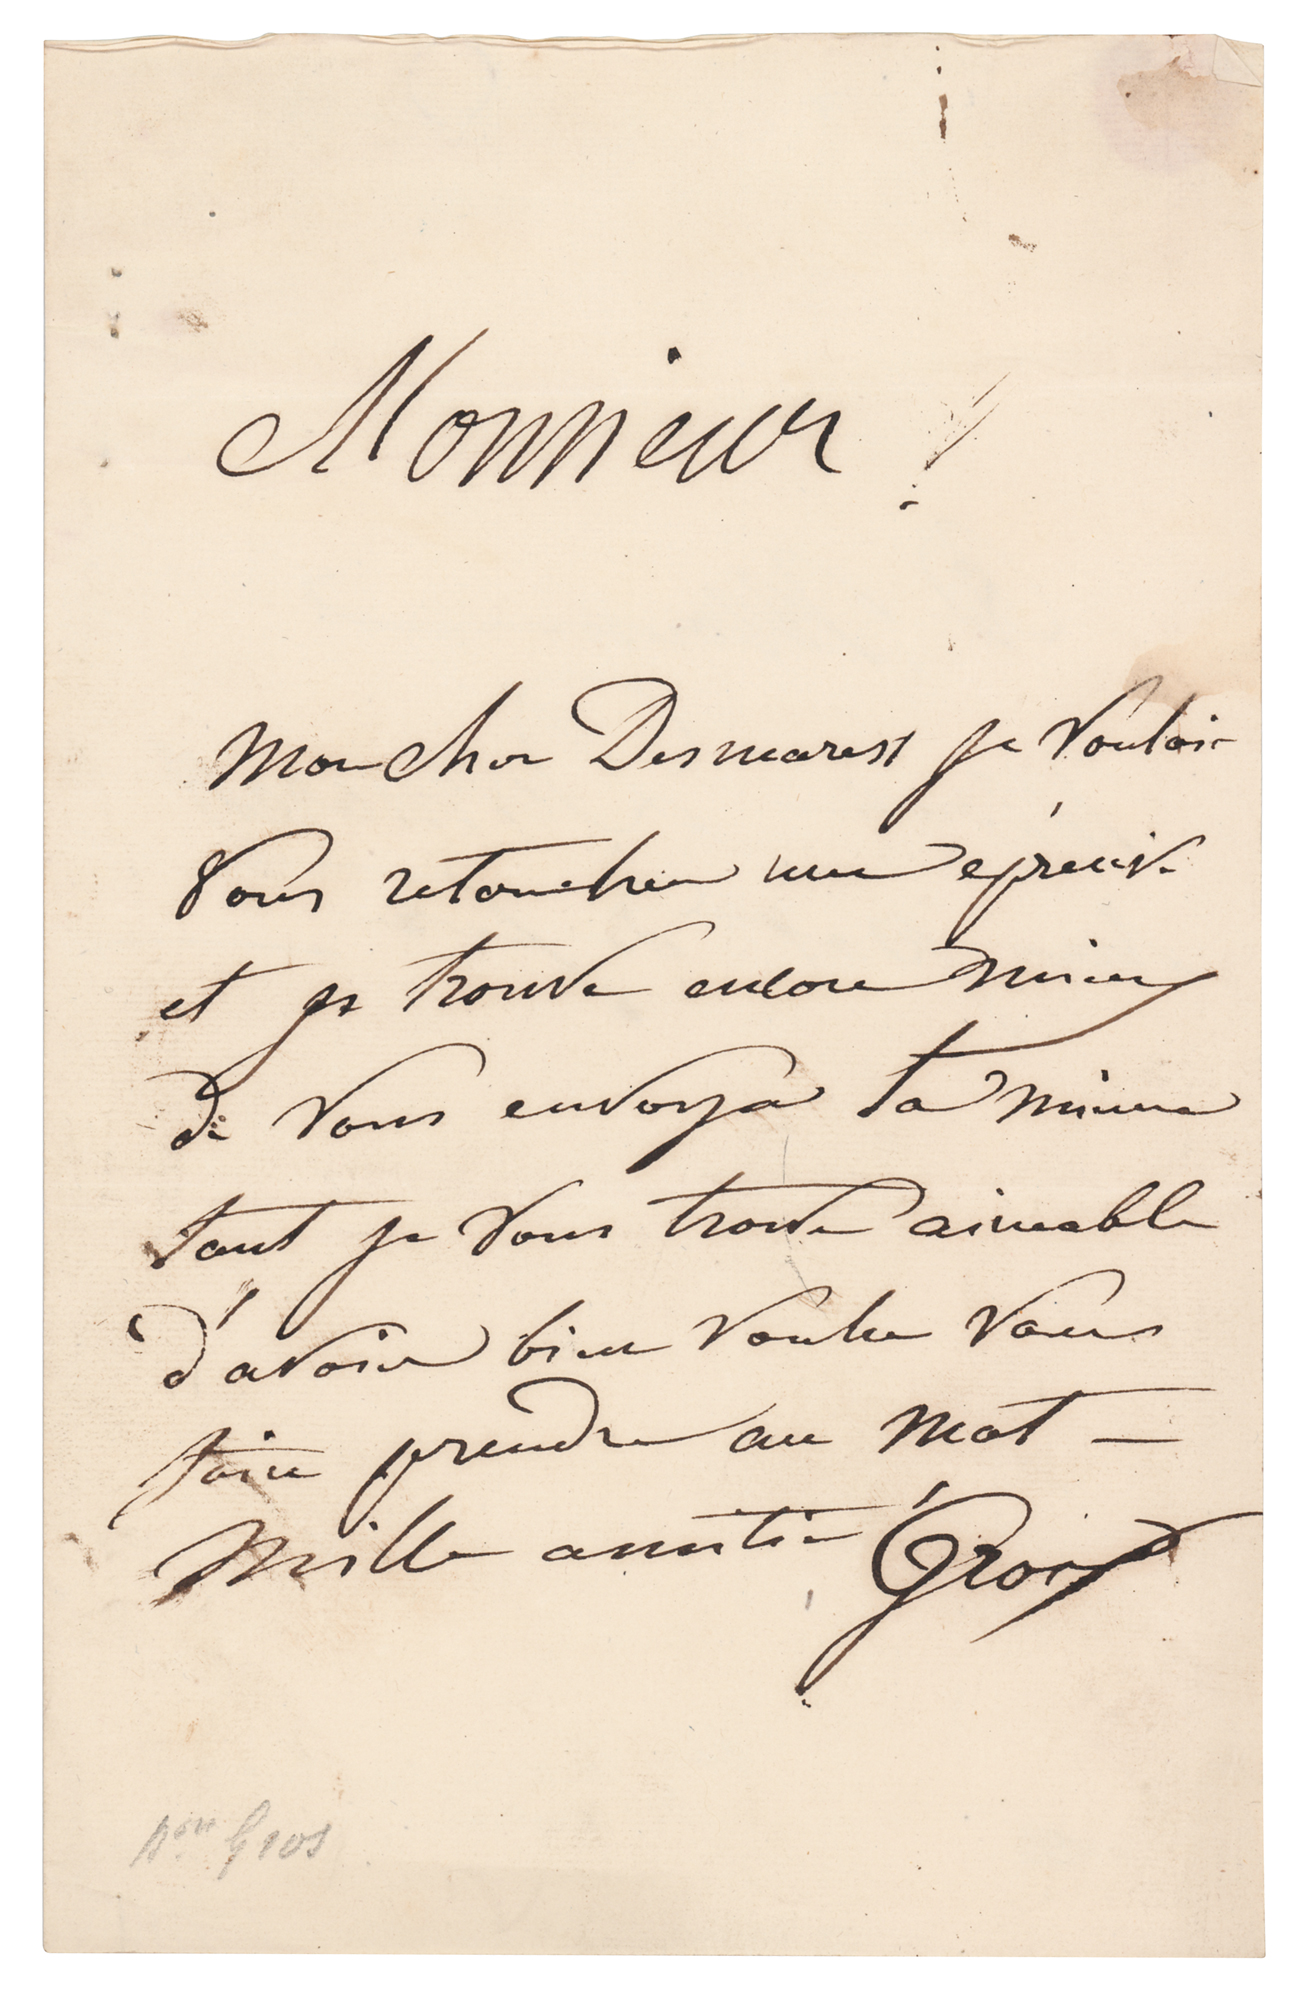 Monsieur !
Mon cher Desmarest je voulois
vous retoucher une épreuve
et je trouve encore mieux
de vous envoyer la mienne
tant je vous trouve aimable
d'avoir bien voulu vous
faire prendre au mot —
Mille amitié Gros
Bon Gros